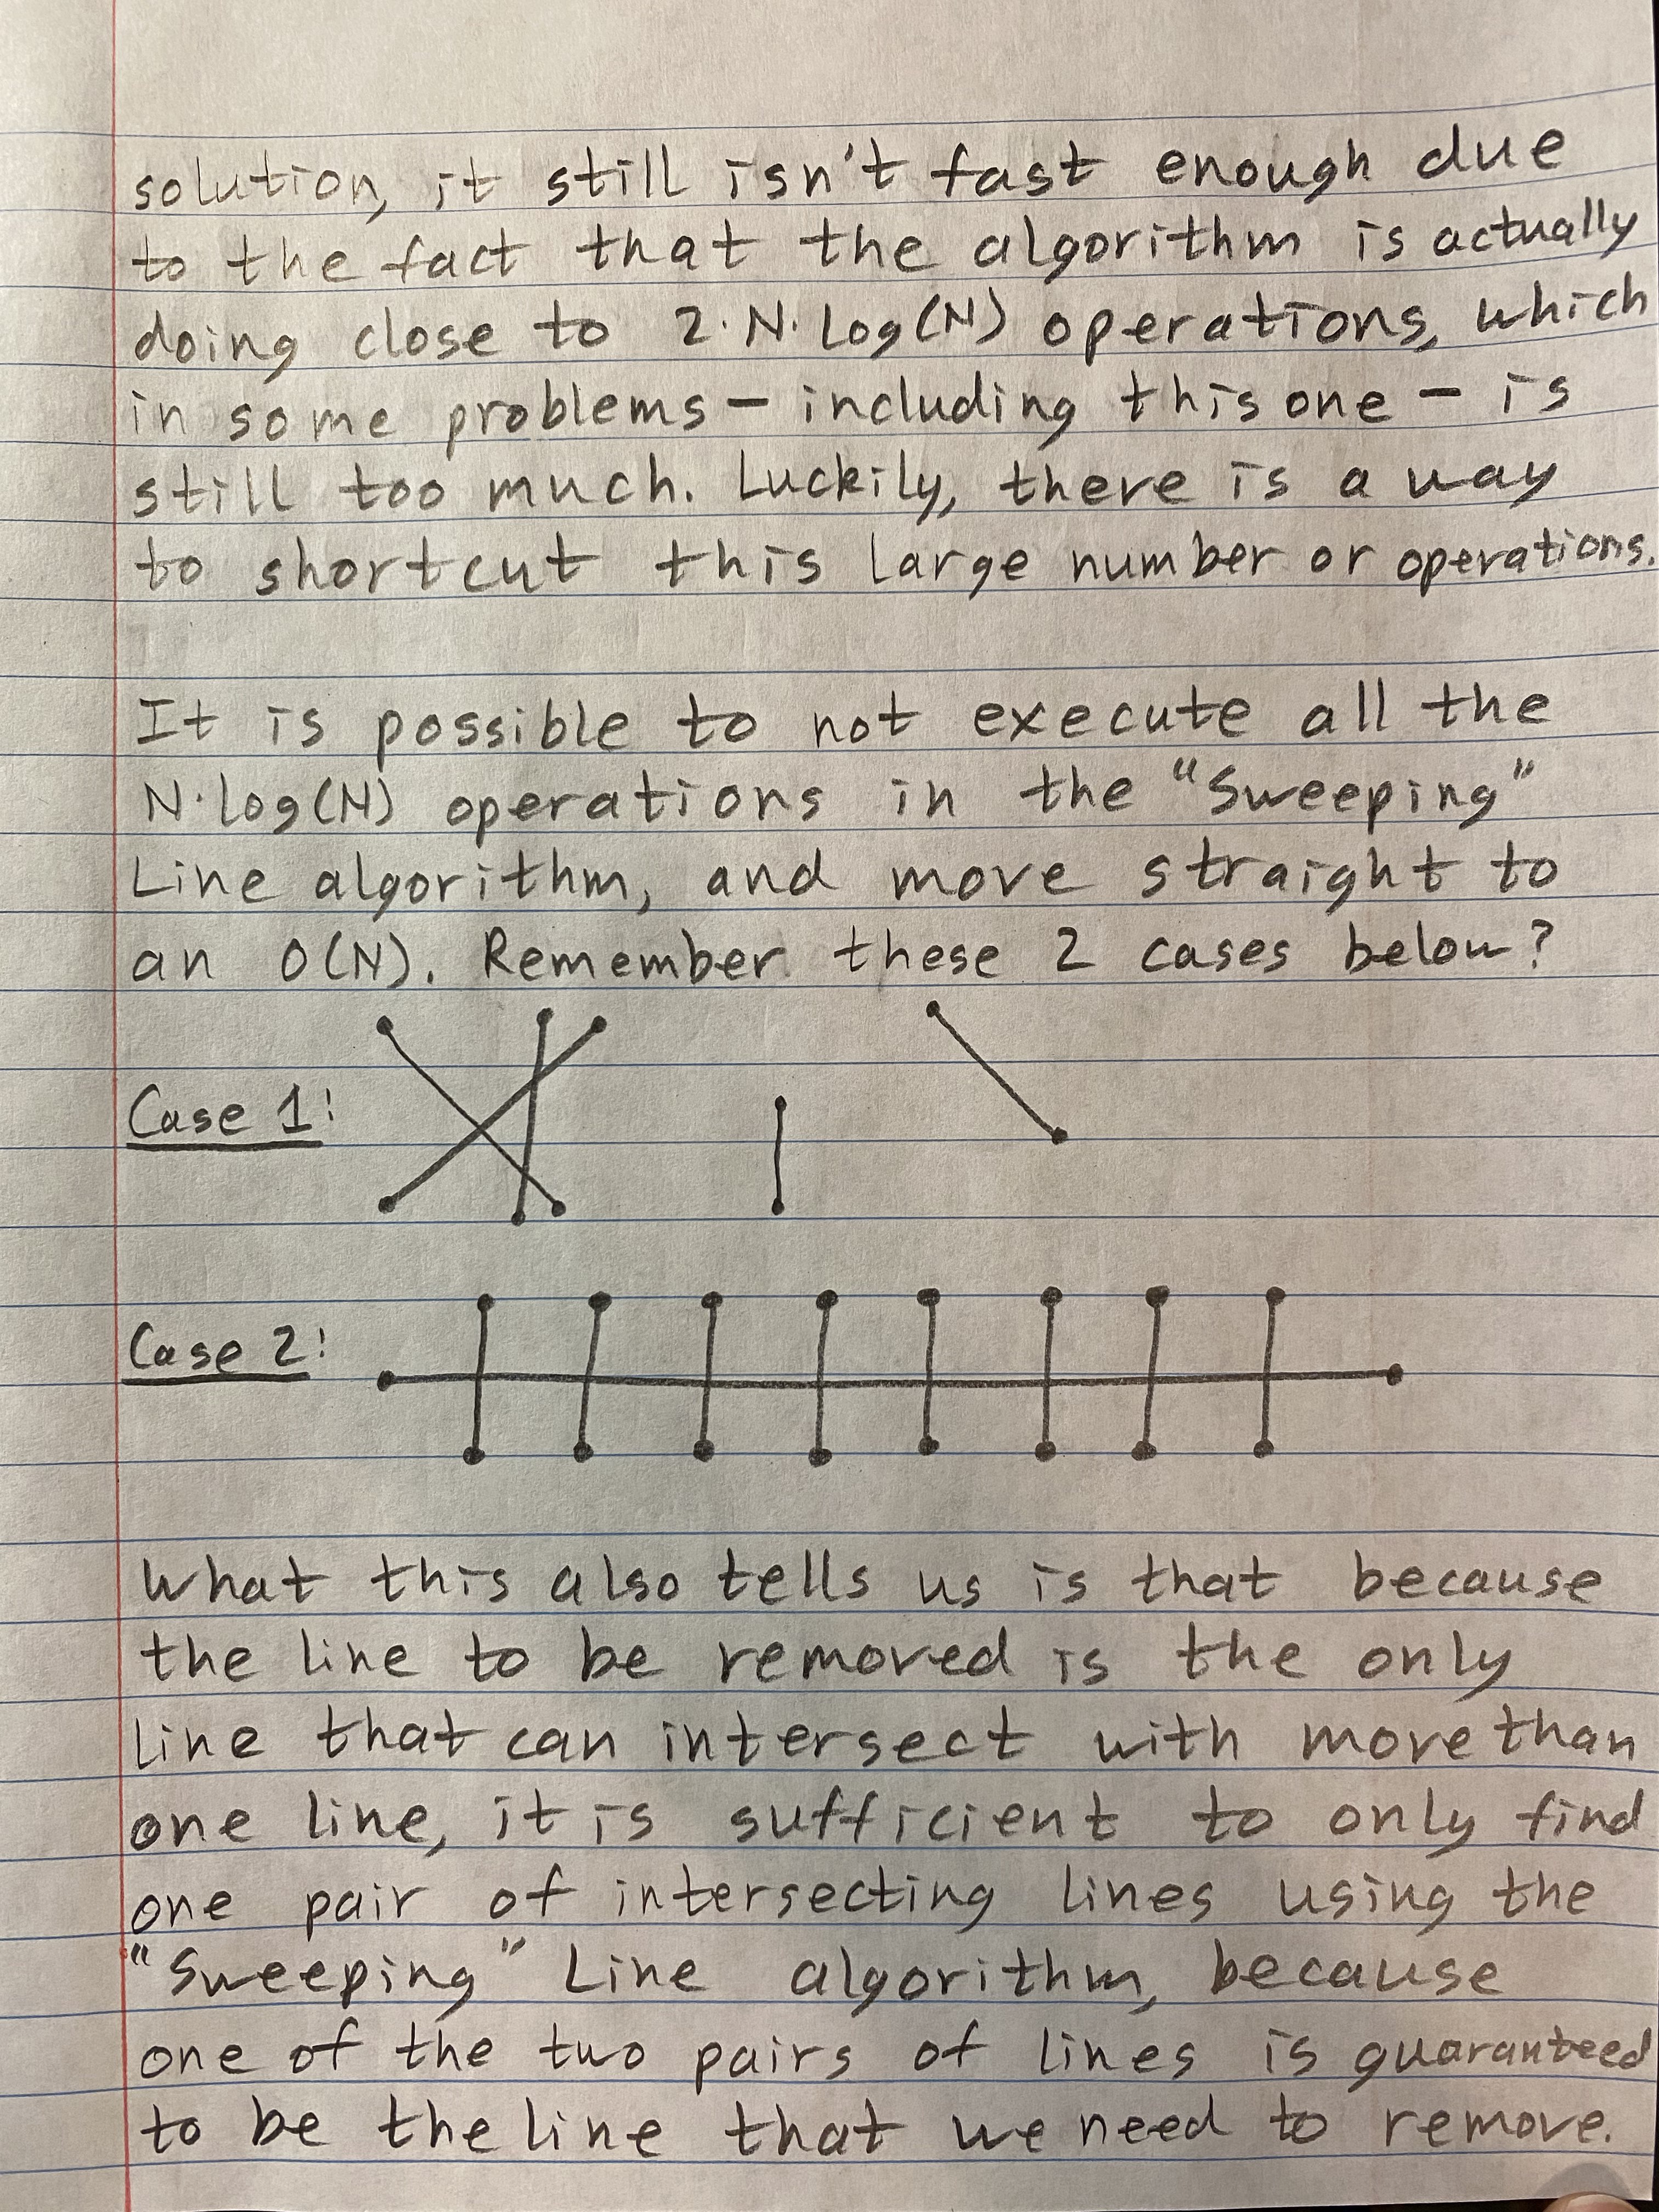 solution, it still isn't fast enough due
to the fact that the algorithm is actually
doing close to 2·N·log(N) operations, which
in some problems - including this one - is
still too much. Luckily, there is a way
to shortcut this large number or operations.
It is possible to not execute all the
N·log(N) operations in the "Sweeping"
Line algorithm, and move straight to
an O(N). Remember these 2 cases below?
Case 1:
Case 2:
What this also tells us is that because
the line to be removed is the only
line that can intersect with more than
one line, it is sufficient to only find
one pair of intersecting lines using the
"Sweeping" Line algorithm, because
one of the two pairs of lines is guaranteed
to be the line that we need to remove.